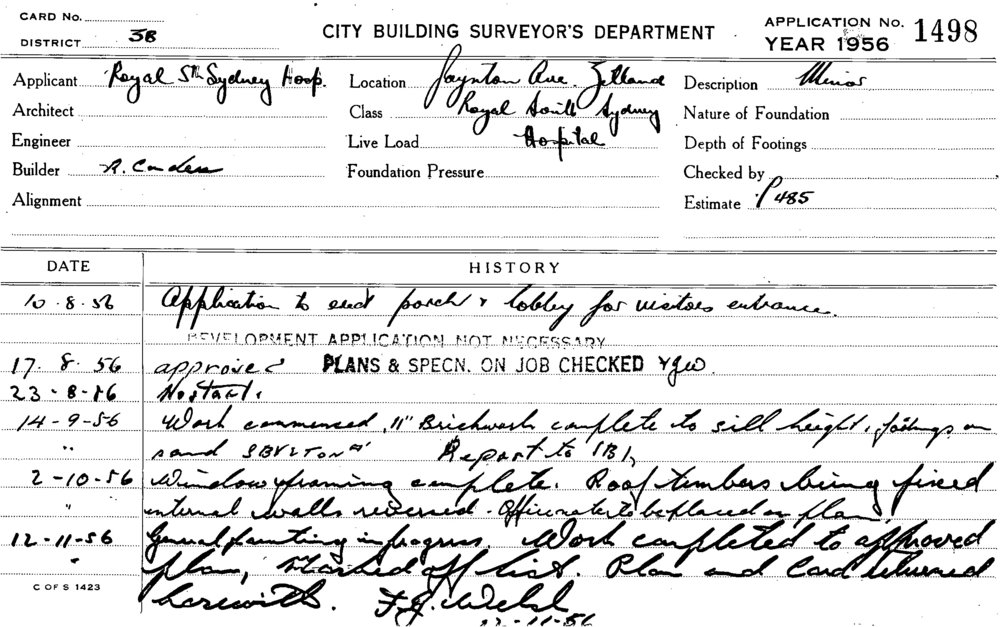 CARD No.
DISTRICT 5B
CITY BUILDING SURVEYOR'S DEPARTMENT
APPLICATION No. 1498
YEAR 1956
Applicant Royal Sth Sydney Hosp.
Location Joynton Ave. Zetland
Description Minor
Architect
Class Royal South Sydney
Nature of Foundation
Engineer
Live Load Hospital
Depth of Footings
Builder R.
Foundation Pressure
Checked by
Alignment
Estimate £485
DATE HISTORY
10.8.56 Application to erect porch & lobby for visitors entrance.
DEVELOPMENT APPLICATION NOT NECESSARY
17.8.56 approved PLANS & SPECN. ON JOB CHECKED
23-8-56 No start.
14-9-56 Work commenced, 11" Brickwork complete to sill height, footings on
" sand Report to
2-10-56 Window framing complete. Roof timbers being fixed
" internal walls to be placed on plan.
12-11-56 General painting in progress. Work completed to approved
" plan, marked off list. Plan and Card returned
herewith. F.J. Welsh
C OF S 1423
12-11-56